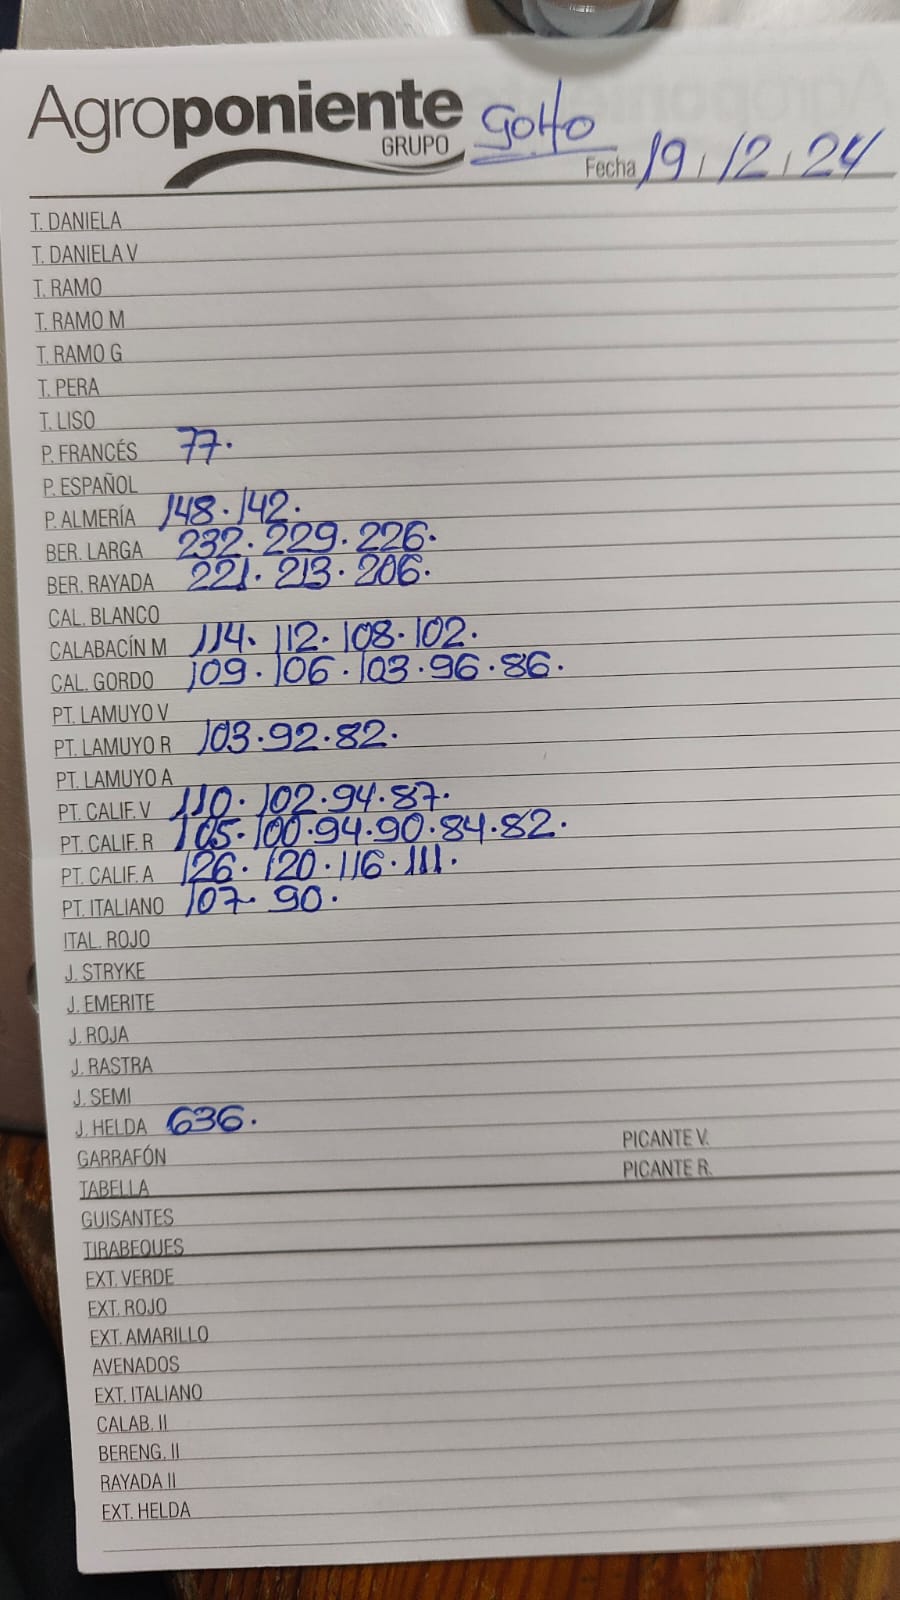 Agroponiente
GRUPO
Golfo
Fecha 19/12/24
T. DANIELA
T. DANIELA V
T. RAMO
T. RAMO M
T. RAMO G
T. PERA
T. LISO
P. FRANCÉS 77.
P. ESPAÑOL
P. ALMERÍA 148. 142.
BER. LARGA 232. 229. 226.
BER. RAYADA 221. 213. 206.
CAL. BLANCO
CALABACÍN M 114. 112. 108. 102.
CAL. GORDO 109. 106. 103. 96. 86.
PT. LAMUYO V
PT. LAMUYO R 103. 92. 82.
PT. LAMUYO A
PT. CALIF. V 110. 102. 94. 87.
PT. CALIF. R 105. 100. 94. 90. 84. 82.
PT. CALIF. A 126. 120. 116. 111.
PT. ITALIANO 107. 90.
ITAL. ROJO
J. STRYKE
J. EMERITE
J. ROJA
J. RASTRA
J. SEMI
J. HELDA 636.
GARRAFÓN PICANTE V.
TABELLA PICANTE R.
GUISANTES
TIRABEQUES
EXT. VERDE
EXT. ROJO
EXT. AMARILLO
AVENADOS
EXT. ITALIANO
CALAB. II
BERENG. II
RAYADA II
EXT. HELDA